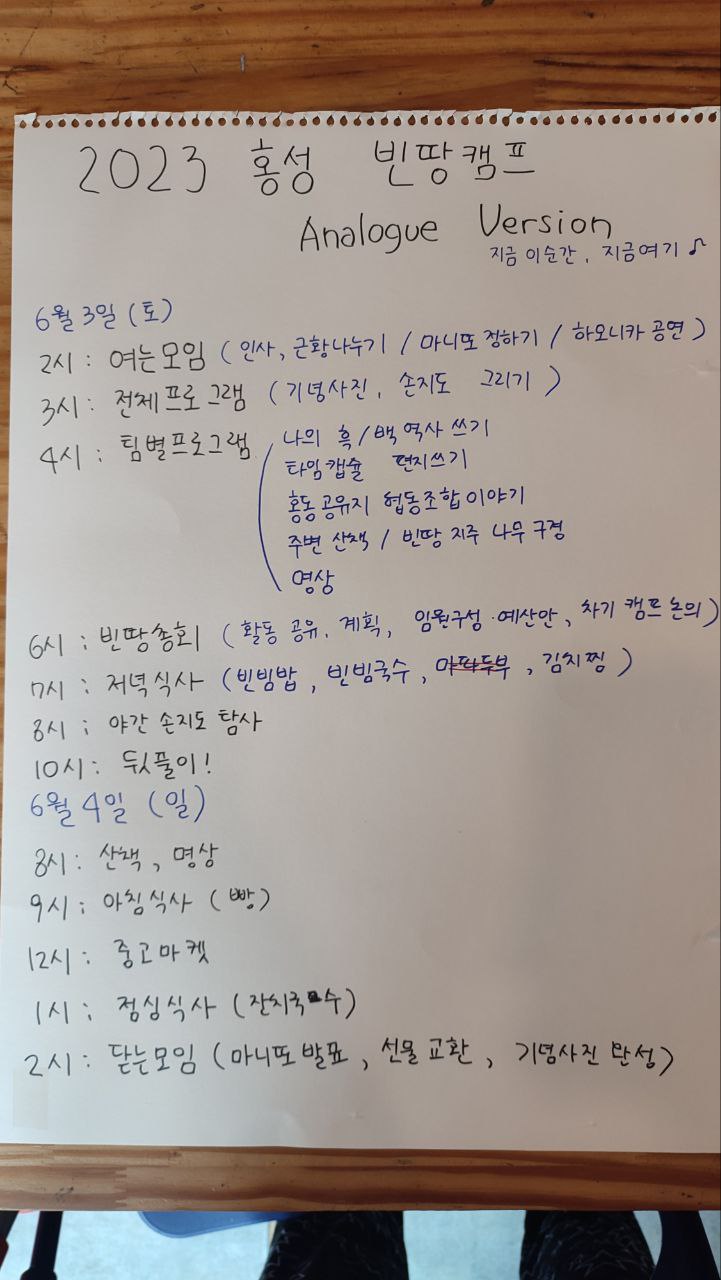 2023 홍성 빈땅캠프
Analogue Version
지금 이순간, 지금여기 ♪
6월 3일 (토)
2시 : 여는모임 (인사, 근황나누기 / 마니또 정하기 / 하모니카 공연)
3시 : 전체프로그램 (기념사진, 손지도 그리기)
4시 : 팀별프로그램
나의 흑/백 역사 쓰기
타임캡슐 편지쓰기
홍동 공유지 협동조합 이야기
주변 산책 / 빈땅 지주 나무 구경
명상
6시 : 빈땅총회 (활동 공유, 계획, 임원구성·예산안, 차기 캠프 논의)
7시 : 저녁식사 (빈빔밥, 빈빔국수, 마파두부, 김치찜)
8시 : 야간 손지도 탐사
10시 : 뒷풀이!
6월 4일 (일)
8시 : 산책, 명상
9시 : 아침식사 (빵)
12시 : 중고마켓
1시 : 점심식사 (잔치국수)
2시 : 닫는모임 (마니또 발표, 선물 교환, 기념사진 완성)